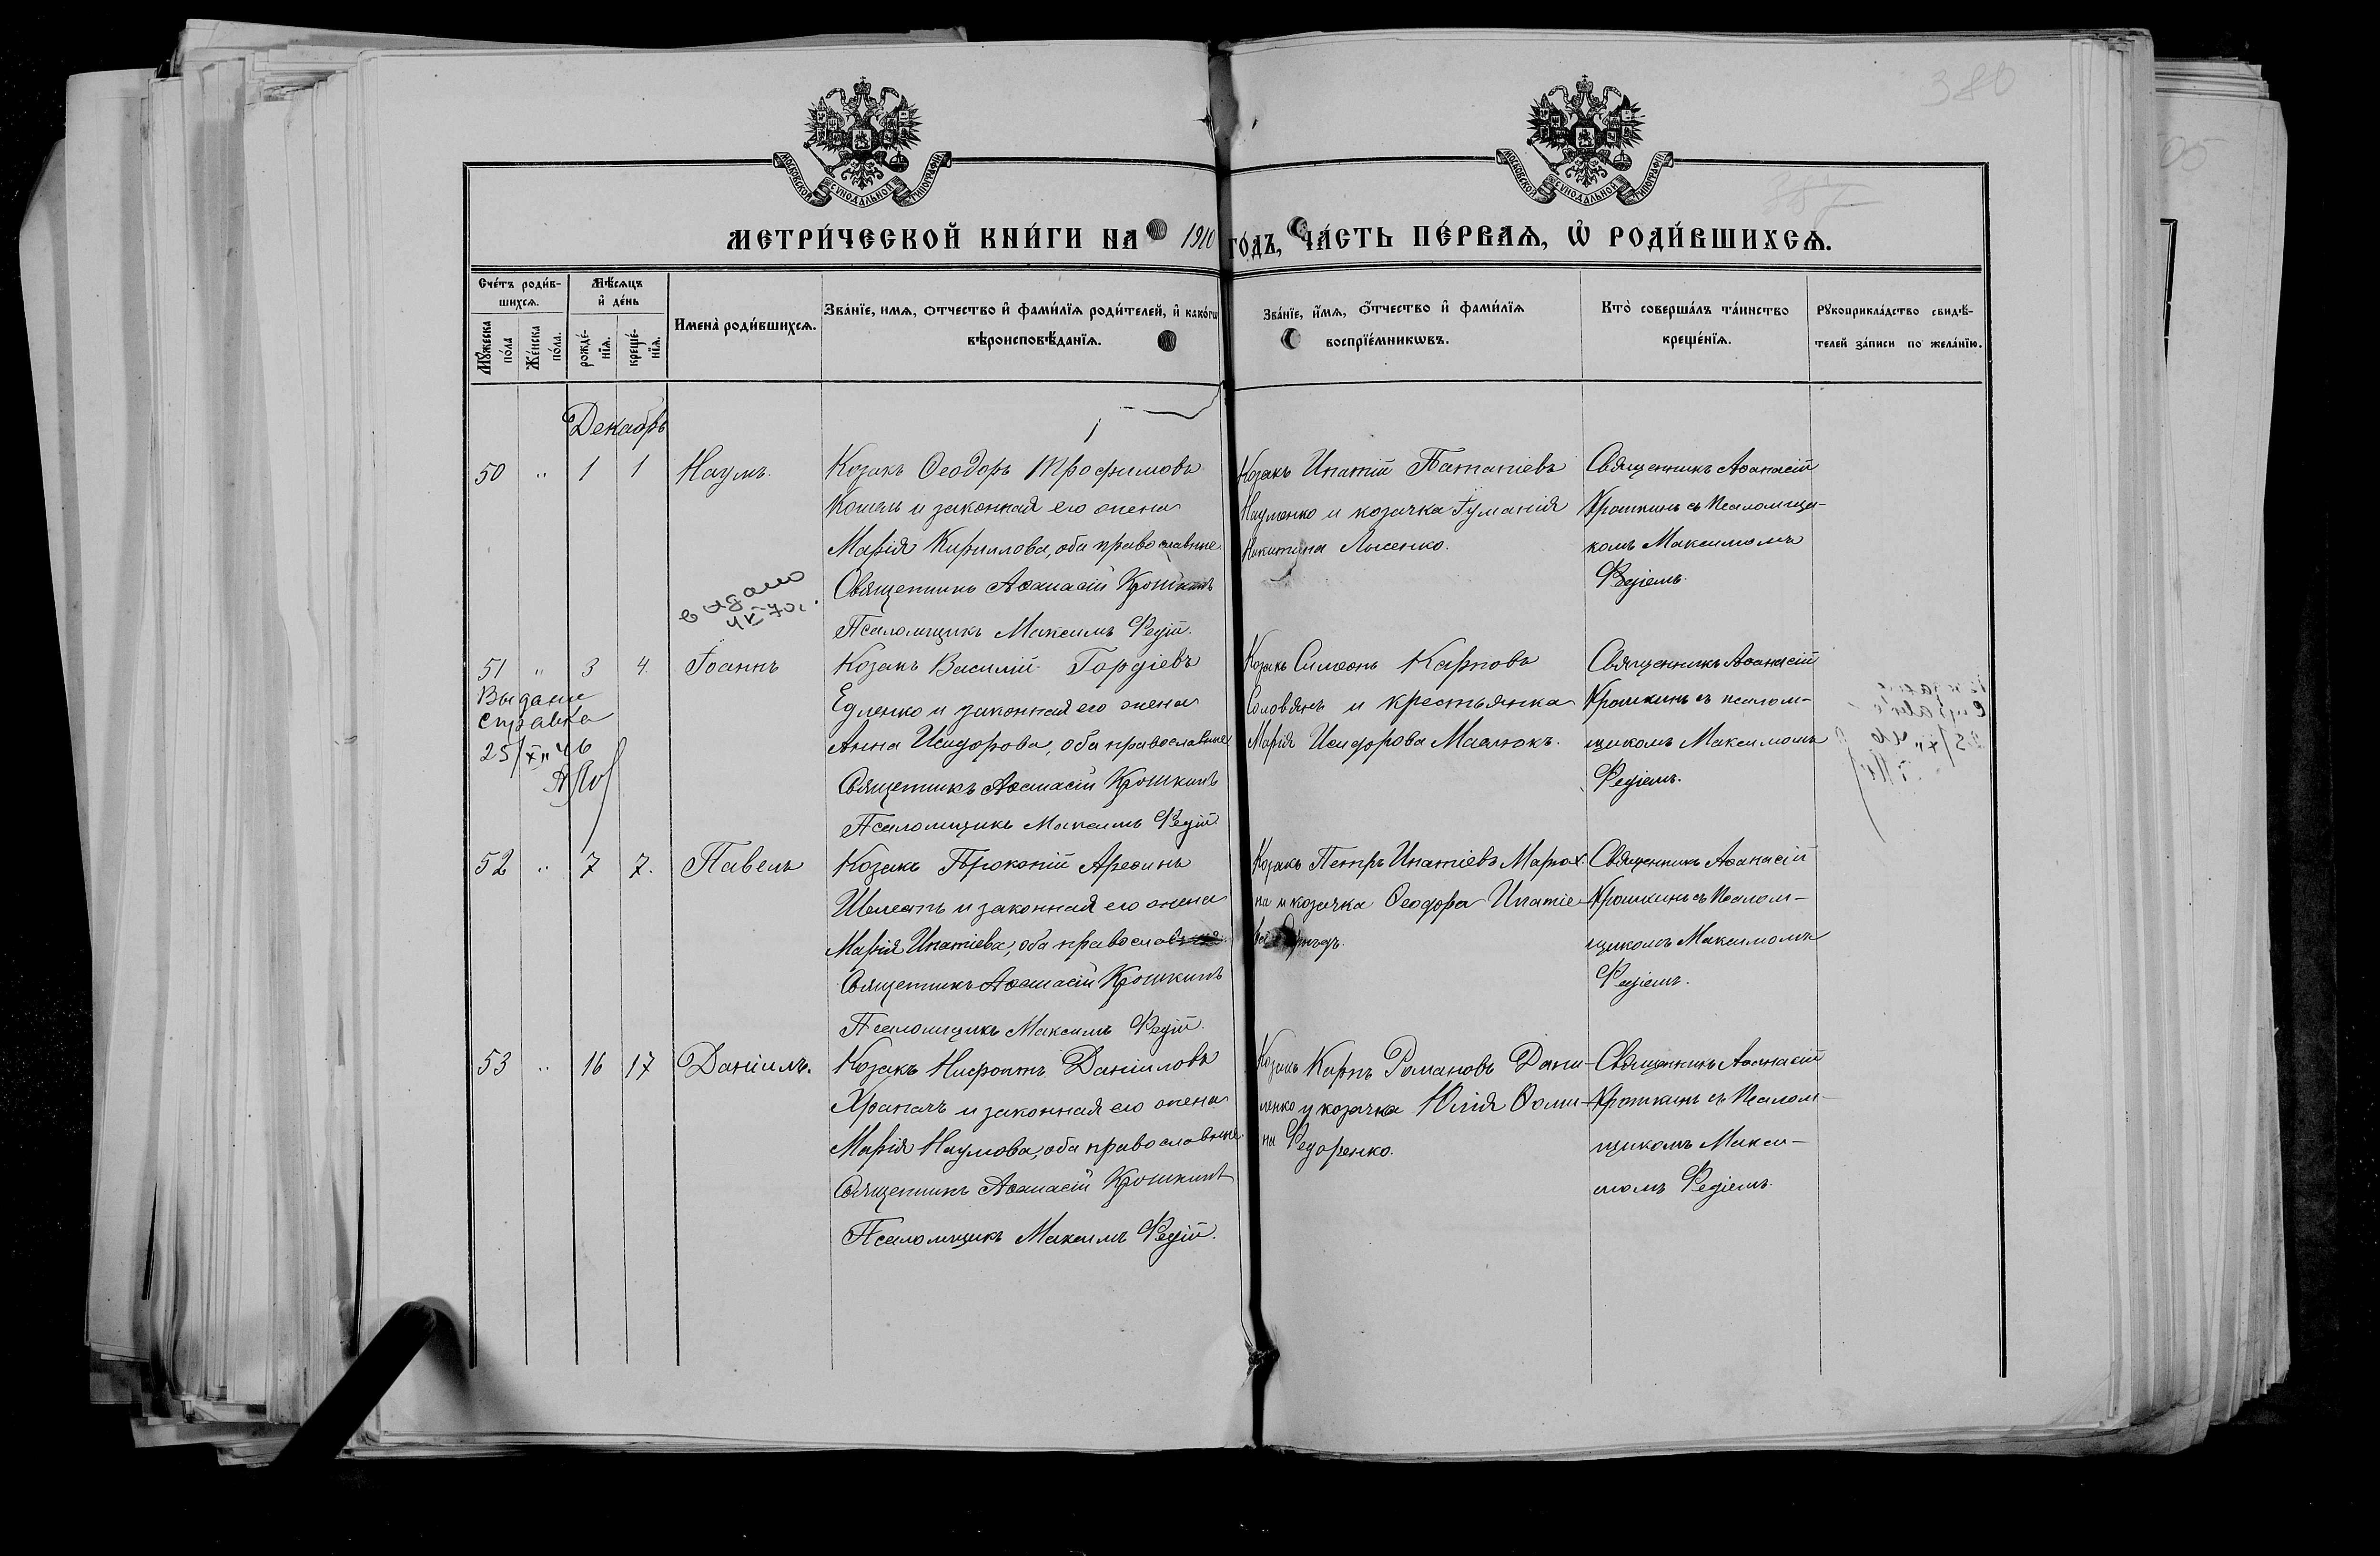 380
МОСКОВСКОЙ СѴНОДАЛЬНОЙ ТИПОГРАФІИ
МОСКОВСКОЙ СѴНОДАЛЬНОЙ ТИПОГРАФІИ
МЕТРИ́ЧЕСКОЙ КНИ́ГИ НА 1910 ГО́ДЪ, ЧА́СТЬ ПЕ́РВАѦ, Ѡ РОДИ́ВШИХСѦ.
Сче́тъ роди́в-
шихсѧ.
Мꙋ́жеска по́ла
Же́нска по́ла.
Мѣ́сѧцъ
и҆ де́нь
рожде́-
нїѧ.
креще́-
нїѧ.
Имена̀ роди́вшихсѧ.
Зва́нїе, имѧ, отчество и҆ фами́лїѧ роди́телей, и҆ како́гѡ
вѣроисповѣ́данїѧ.
Зва́нїе, и҆́мѧ, о҆́тчество и҆ фами́лїѧ
воспрїе́мникѡвъ.
Кто̀ соверша́лъ та́инство
креще́нїѧ.
Рꙋкоприкла́дство свидѣ́-
телей за́писи по жела́нїю.
Декабрь
50 " 1 1 Наумъ.
Козакъ Ѳеодоръ Трофимовъ
Кошль и законная его жена
Марія Кириллова, оба православные
Священникъ Аѳанасій Крошкинъ
Псаломщикъ Максимъ Редій.
Козакъ Ипатій Потапіевъ
Науменко и козачка Гуманія
Никитина Лысенко.
Священникъ Аѳанасій
Крошкинъ съ Псаломщи-
комъ Максимомъ
Редіемъ.
выдано
70г.
51 " 3 4. Іоаннъ
Выдана
справка
25/XII 46
Козакъ Василій Гордіевъ
Едленко и законная его жена
Анна Исидорова, оба православные
Священникъ Аѳанасій Крошкинъ
Псаломщикъ Максимъ Редій
Козакъ Симеонъ Карповъ
Соловянъ и крестьянка
Марія Исидорова Маслюкъ.
Священникъ Аѳанасій
Крошкинъ съ псалом-
щикомъ Максимомъ
Редіемъ.
52 " 7 7. Павелъ
Козакъ Прокопій Ареѳинъ
Шелестъ и законная его жена
Марія Ипатіева, оба православные
Священникъ Аѳанасій Крошкинъ
Псаломщикъ Максимъ Редій.
Козакъ Петръ Ипатіевъ Марох-
на и козачка Ѳеодора Ипатіе-
ва
Священникъ Аѳанасій
Крошкинъ съ Псалом-
щикомъ Максимомъ
Редіемъ.
53 " 16 17 Даніилъ.
Козакъ Нифонтъ Даніиловъ
Храпачъ и законная его жена
Марія Наумова, оба православные
Священникъ Аѳанасій Крошкинъ
Псаломщикъ Максимъ Редій.
Козакъ Карпъ Романовъ Дани-
ленко и козачка Юлія Ѳоми-
на Редоренко.
Священникъ Аѳанасій
Крошкинъ съ Псалом-
щикомъ Макси-
момъ Редіемъ.